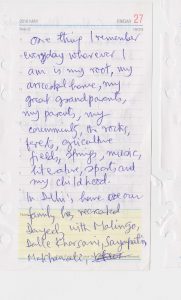 2018 MAY
SUNDAY 27
One thing I remember
everyday wherever I
am is my root, my
ancestral home, my
great grandparents,
my parents, my
community, the rocks,
forests, agriculture
fields, springs, music,
literature, sports and
my childhood.
In Delhi's house our
family has recreated
with Malingo,
Dalle Khorsani, Sayapatri
Makhamali,